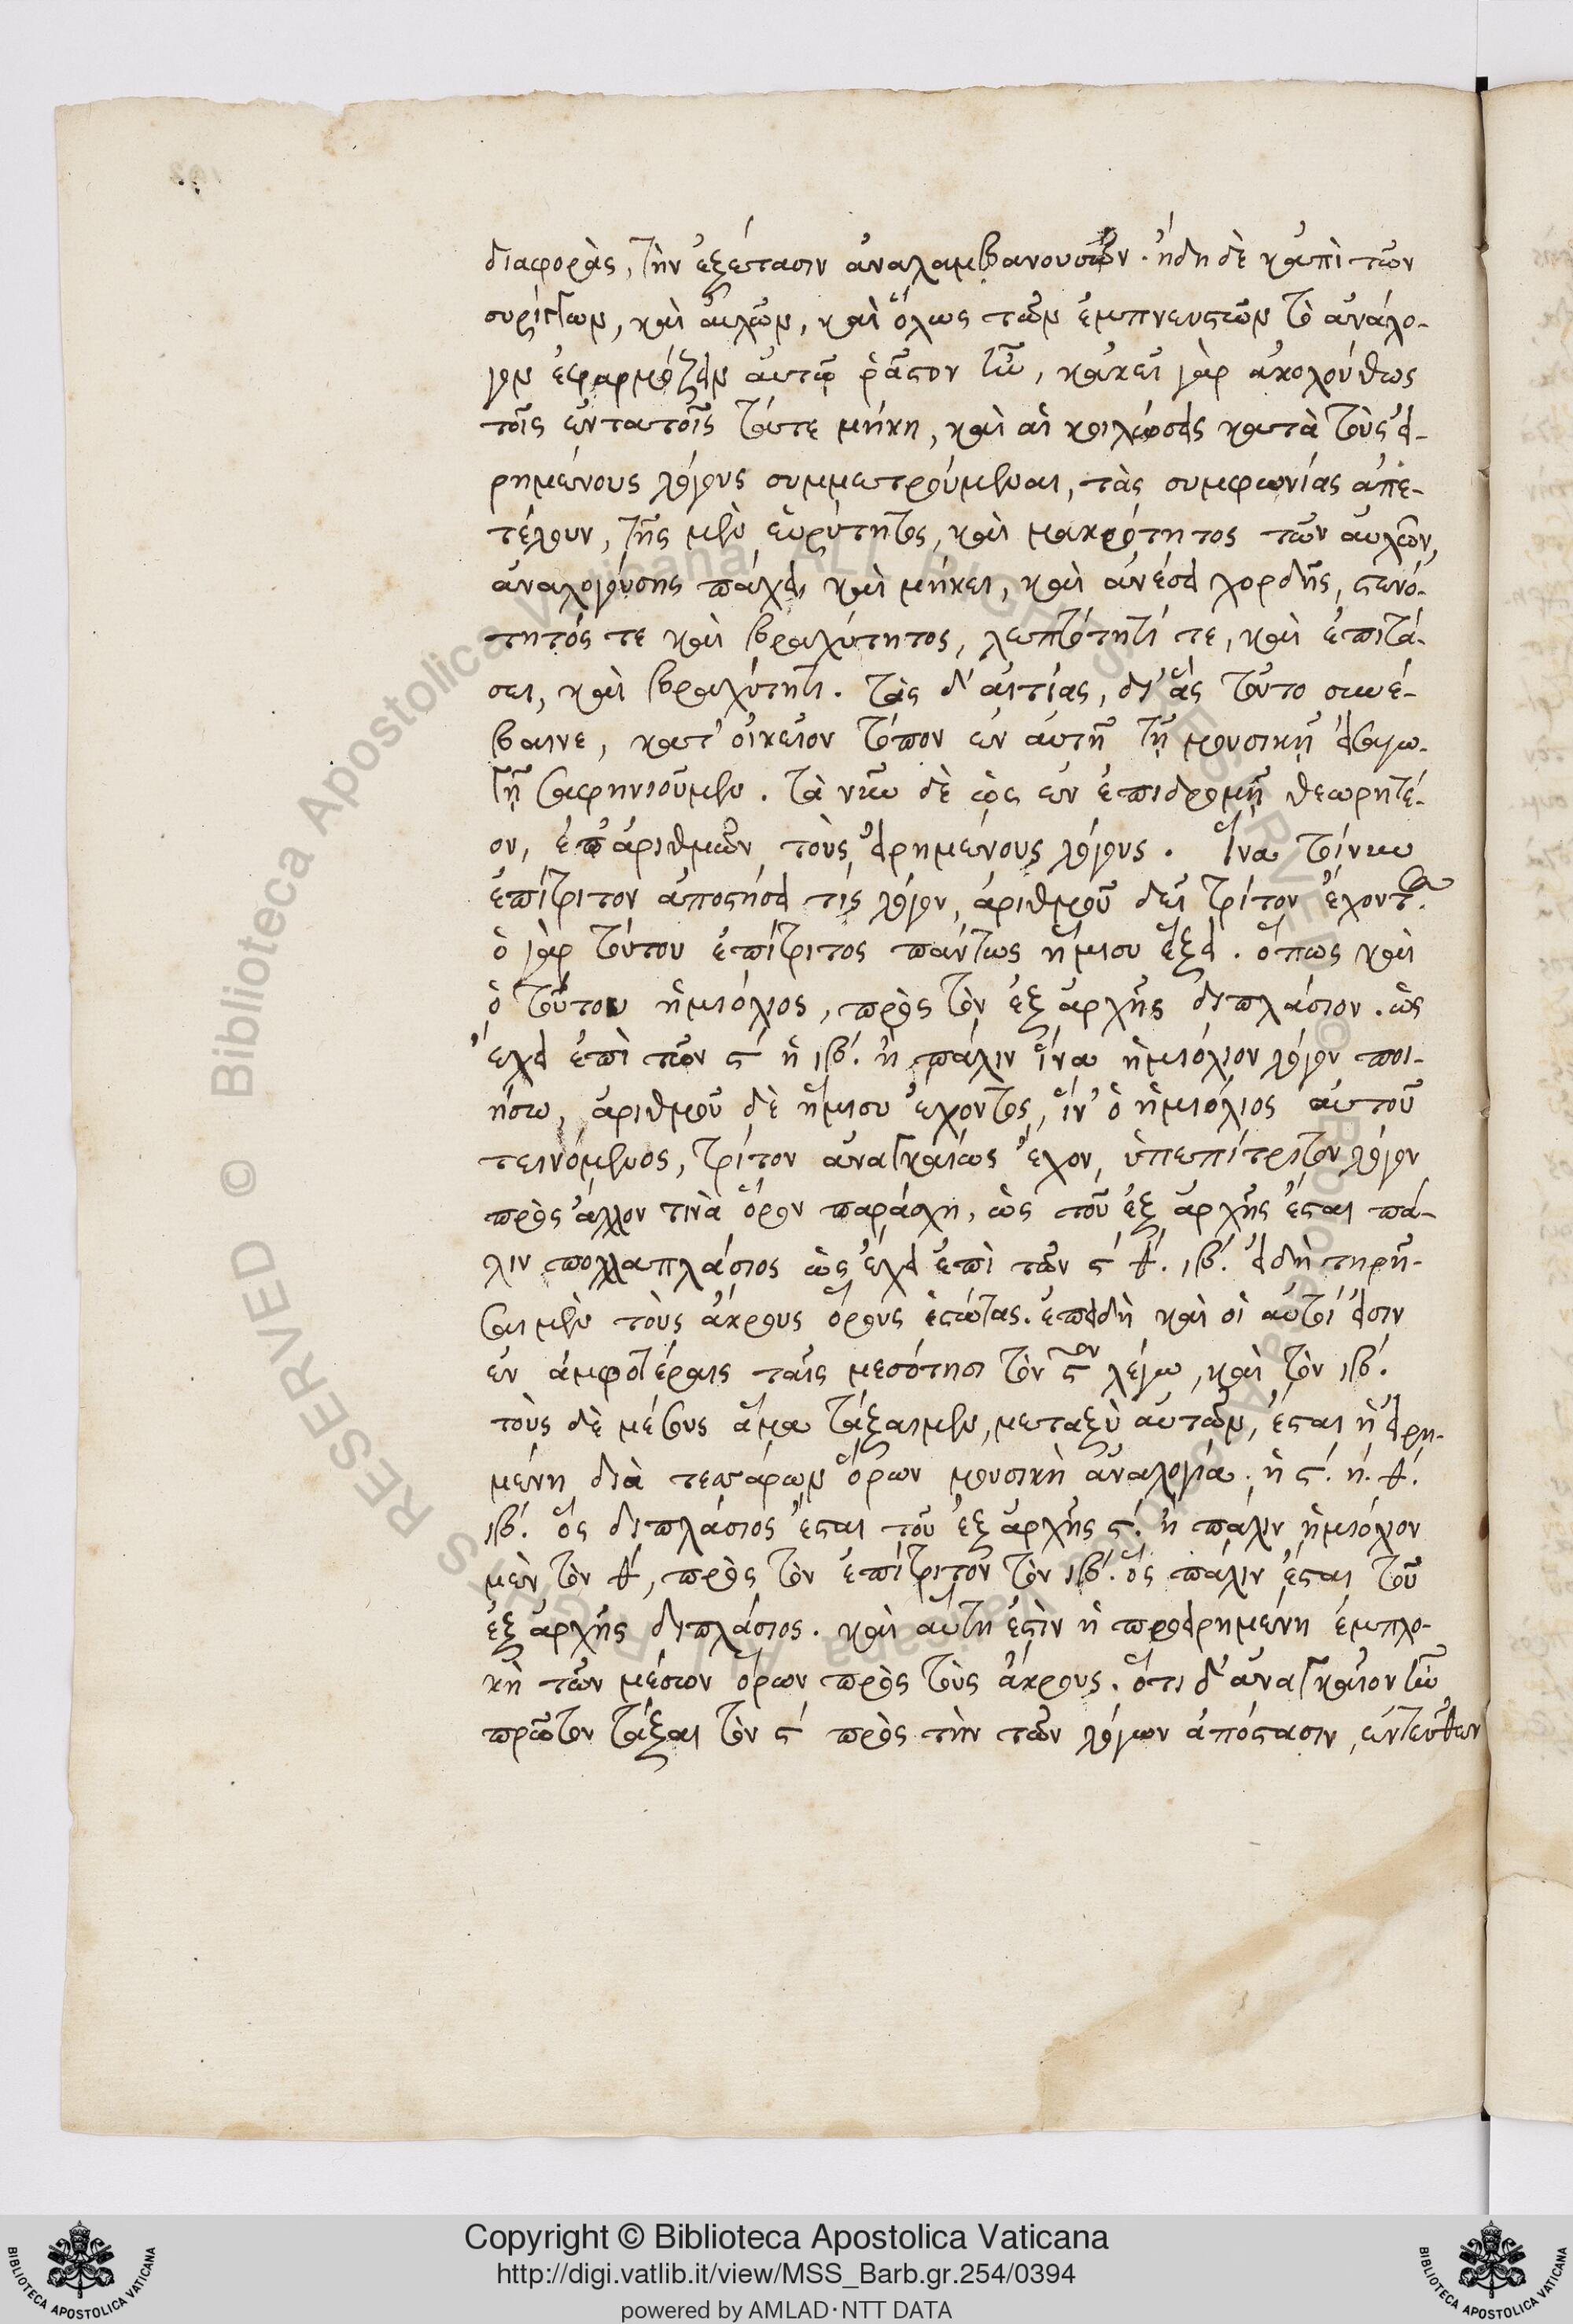 διαφορὰς, τὴν ἐξέτασιν ἀναλαμβανουσῶν. ἤδη δὲ κἀπὶ τῶν
συρίγγων, καὶ αὐλῶν, καὶ ὅλως τῶν ἐμπνευστῶν τὸ ἀνάλο-
γον ἐφαρμόζειν αὐτῷ ῥᾷστον ἦν, κἀκεῖ γὰρ ἀκολούθως
τοῖς ἐντατοῖς τά τε μήκη, καὶ αἱ κοιλώσεις κατὰ τοὺς εἰ-
ρημένους λόγους συμμετρούμεναι, τὰς συμφωνίας ἀπε-
τέλουν, τῆς μὲν εὐρύτητος, καὶ μακρότητος τῶν αὐλῶν,
ἀναλογούσης πάχει, καὶ μήκει, καὶ ἀνέσει χορδῆς, στενό-
τητός τε καὶ βραχύτητος, λεπτότητί τε, καὶ ἐπιτά-
σει, καὶ βραχύτητι. τὰς δ' αἰτίας, δι' ἃς τοῦτο συνέ-
βαινε, κατ' οἰκεῖον τόπον ἐν αὐτῇ τῇ μουσικῇ εἰσαγω-
γῇ σαφηνιοῦμεν. τὰ νῦν δὲ ὡς ἐν ἐπιδρομῇ θεωρητέ-
ον, ἐπ' ἀριθμῶν τοὺς εἰρημένους λόγους. ἵνα τοίνυν
ἐπίτριτον ἀποστήσει τίς λόγον, ἀριθμοῦ δεῖ τρίτον ἔχοντα.
ὁ γὰρ τούτου ἐπίτριτος πάντως ἥμισυ ἕξει. ὅπως καὶ
ὁ τούτου ἡμιόλιος, πρὸς τὸν ἐξ ἀρχῆς διπλάσιον. ὡς
ἔχει ἐπὶ τῶν ϛ΄ ἠ ιβ΄. ἢ πάλιν ἵνα ἡμιόλιον λόγον ποι-
ήσω, ἀριθμοῦ δὲ ἥμισυ ἔχοντος, ἵν' ὁ ἡμιόλιος αὐτοῦ
τεινόμενος, τρίτον ἀναγκαίως ἔχον, ὑπεπίτριτον λόγον
πρὸς ἄλλον τινὰ ὅρον παράσχη, ὡς τοῦ ἐξ ἀρχῆς ἔσται πά-
λιν πολλαπλάσιος ὡς ἔχει ἐπὶ τῶν ϛ΄ θ΄. ιβ΄. εἰ δὴ τηρή-
σαιμεν τοὺς ἄκρους ὅρους ἑστῶτας. ἐπειδὴ καὶ οἱ αὐτοί εἰσιν
ἐν ἀμφοτέραις ταῖς μεσότησι τὸν ϛον λέγω, καὶ τὸν ιβ΄.
τοὺς δὲ μέσους ἅμα τάξαιμεν, μεταξὺ αὐτῶν, ἔσται ἡ εἰρη-
μένη διὰ τεσσάρων ὅρων μουσικὴ ἀναλογία. ἡ ϛ΄. ή. θ΄.
ιβ΄. ὃς διπλάσιος ἔσται τοῦ ἐξ ἀρχῆς ϛ΄. ἢ πάλιν ἡμιόλιον
μὲν τὸν θ΄, πρὸς τὸν ἐπίτριτον τὸν ιβ΄. ὃς πάλιν ἔσται τοῦ
ἐξ ἀρχῆς διπλάσιος. καὶ αὕτη ἐστὶν ἡ προειρημένη ἐμπλο-
κὴ τῶν μέσων ὅρων πρὸς τοὺς ἄκρους. ὅτι δ' ἀναγκαῖον ἦν
πρῶτον τάξαι τὸν ϛ΄ πρὸς τὴν τῶν λόγων ἀπόστασιν, ἐντεῦθεν
Copyright © Biblioteca Apostolica Vaticana
http://digi.vatlib.it/view/MSS_Barb.gr.254/0394
powered by AMLAD·NTT DATA